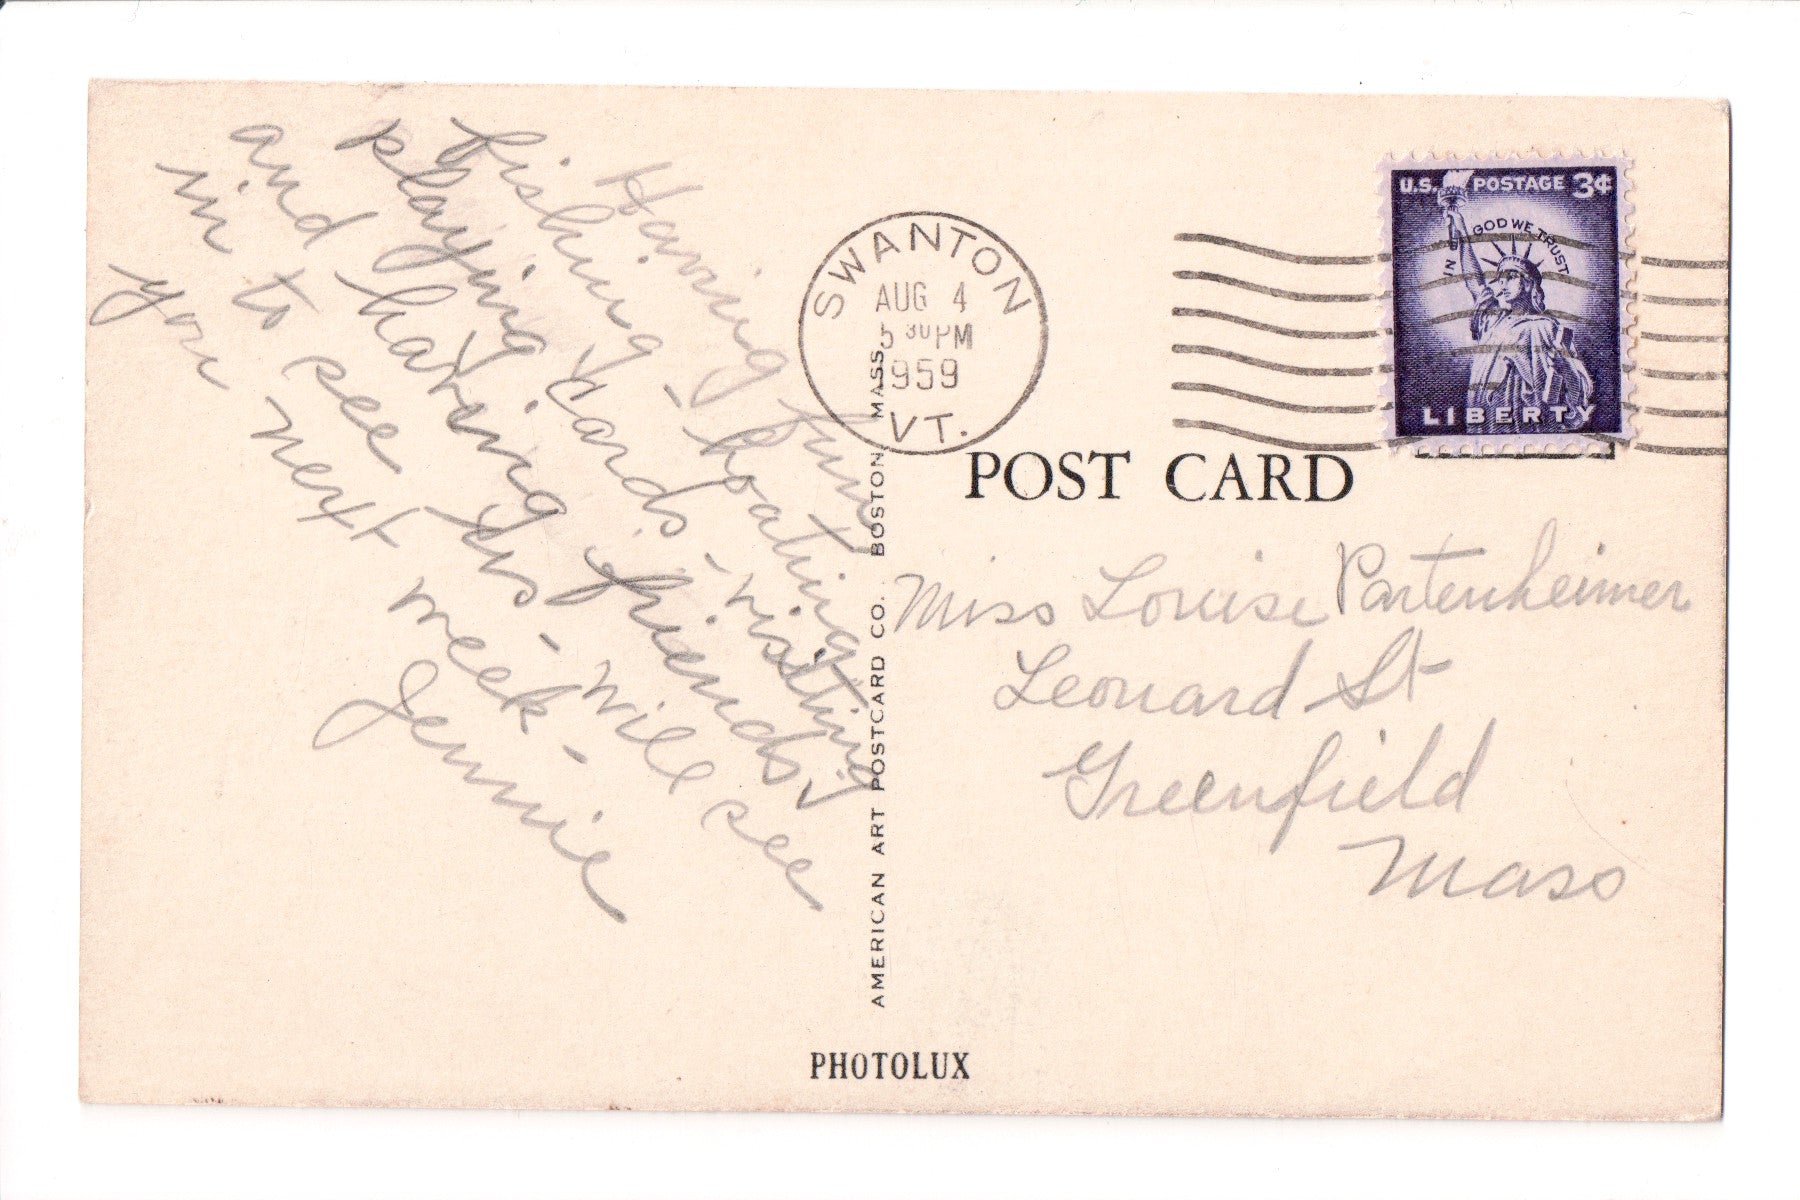 Having fun
fishing - boating
playing cards - visiting
and having friends
in to see us - will see
you next week -
Jennie
SWANTON
AUG 4
5 30 PM
1959
VT.
U.S. POSTAGE 3¢
IN GOD WE TRUST
LIBERTY
POST CARD
Miss Louise Partenheimer
Leonard St
Greenfield
Mass
AMERICAN ART POSTCARD CO., BOSTON, MASS.
PHOTOLUX